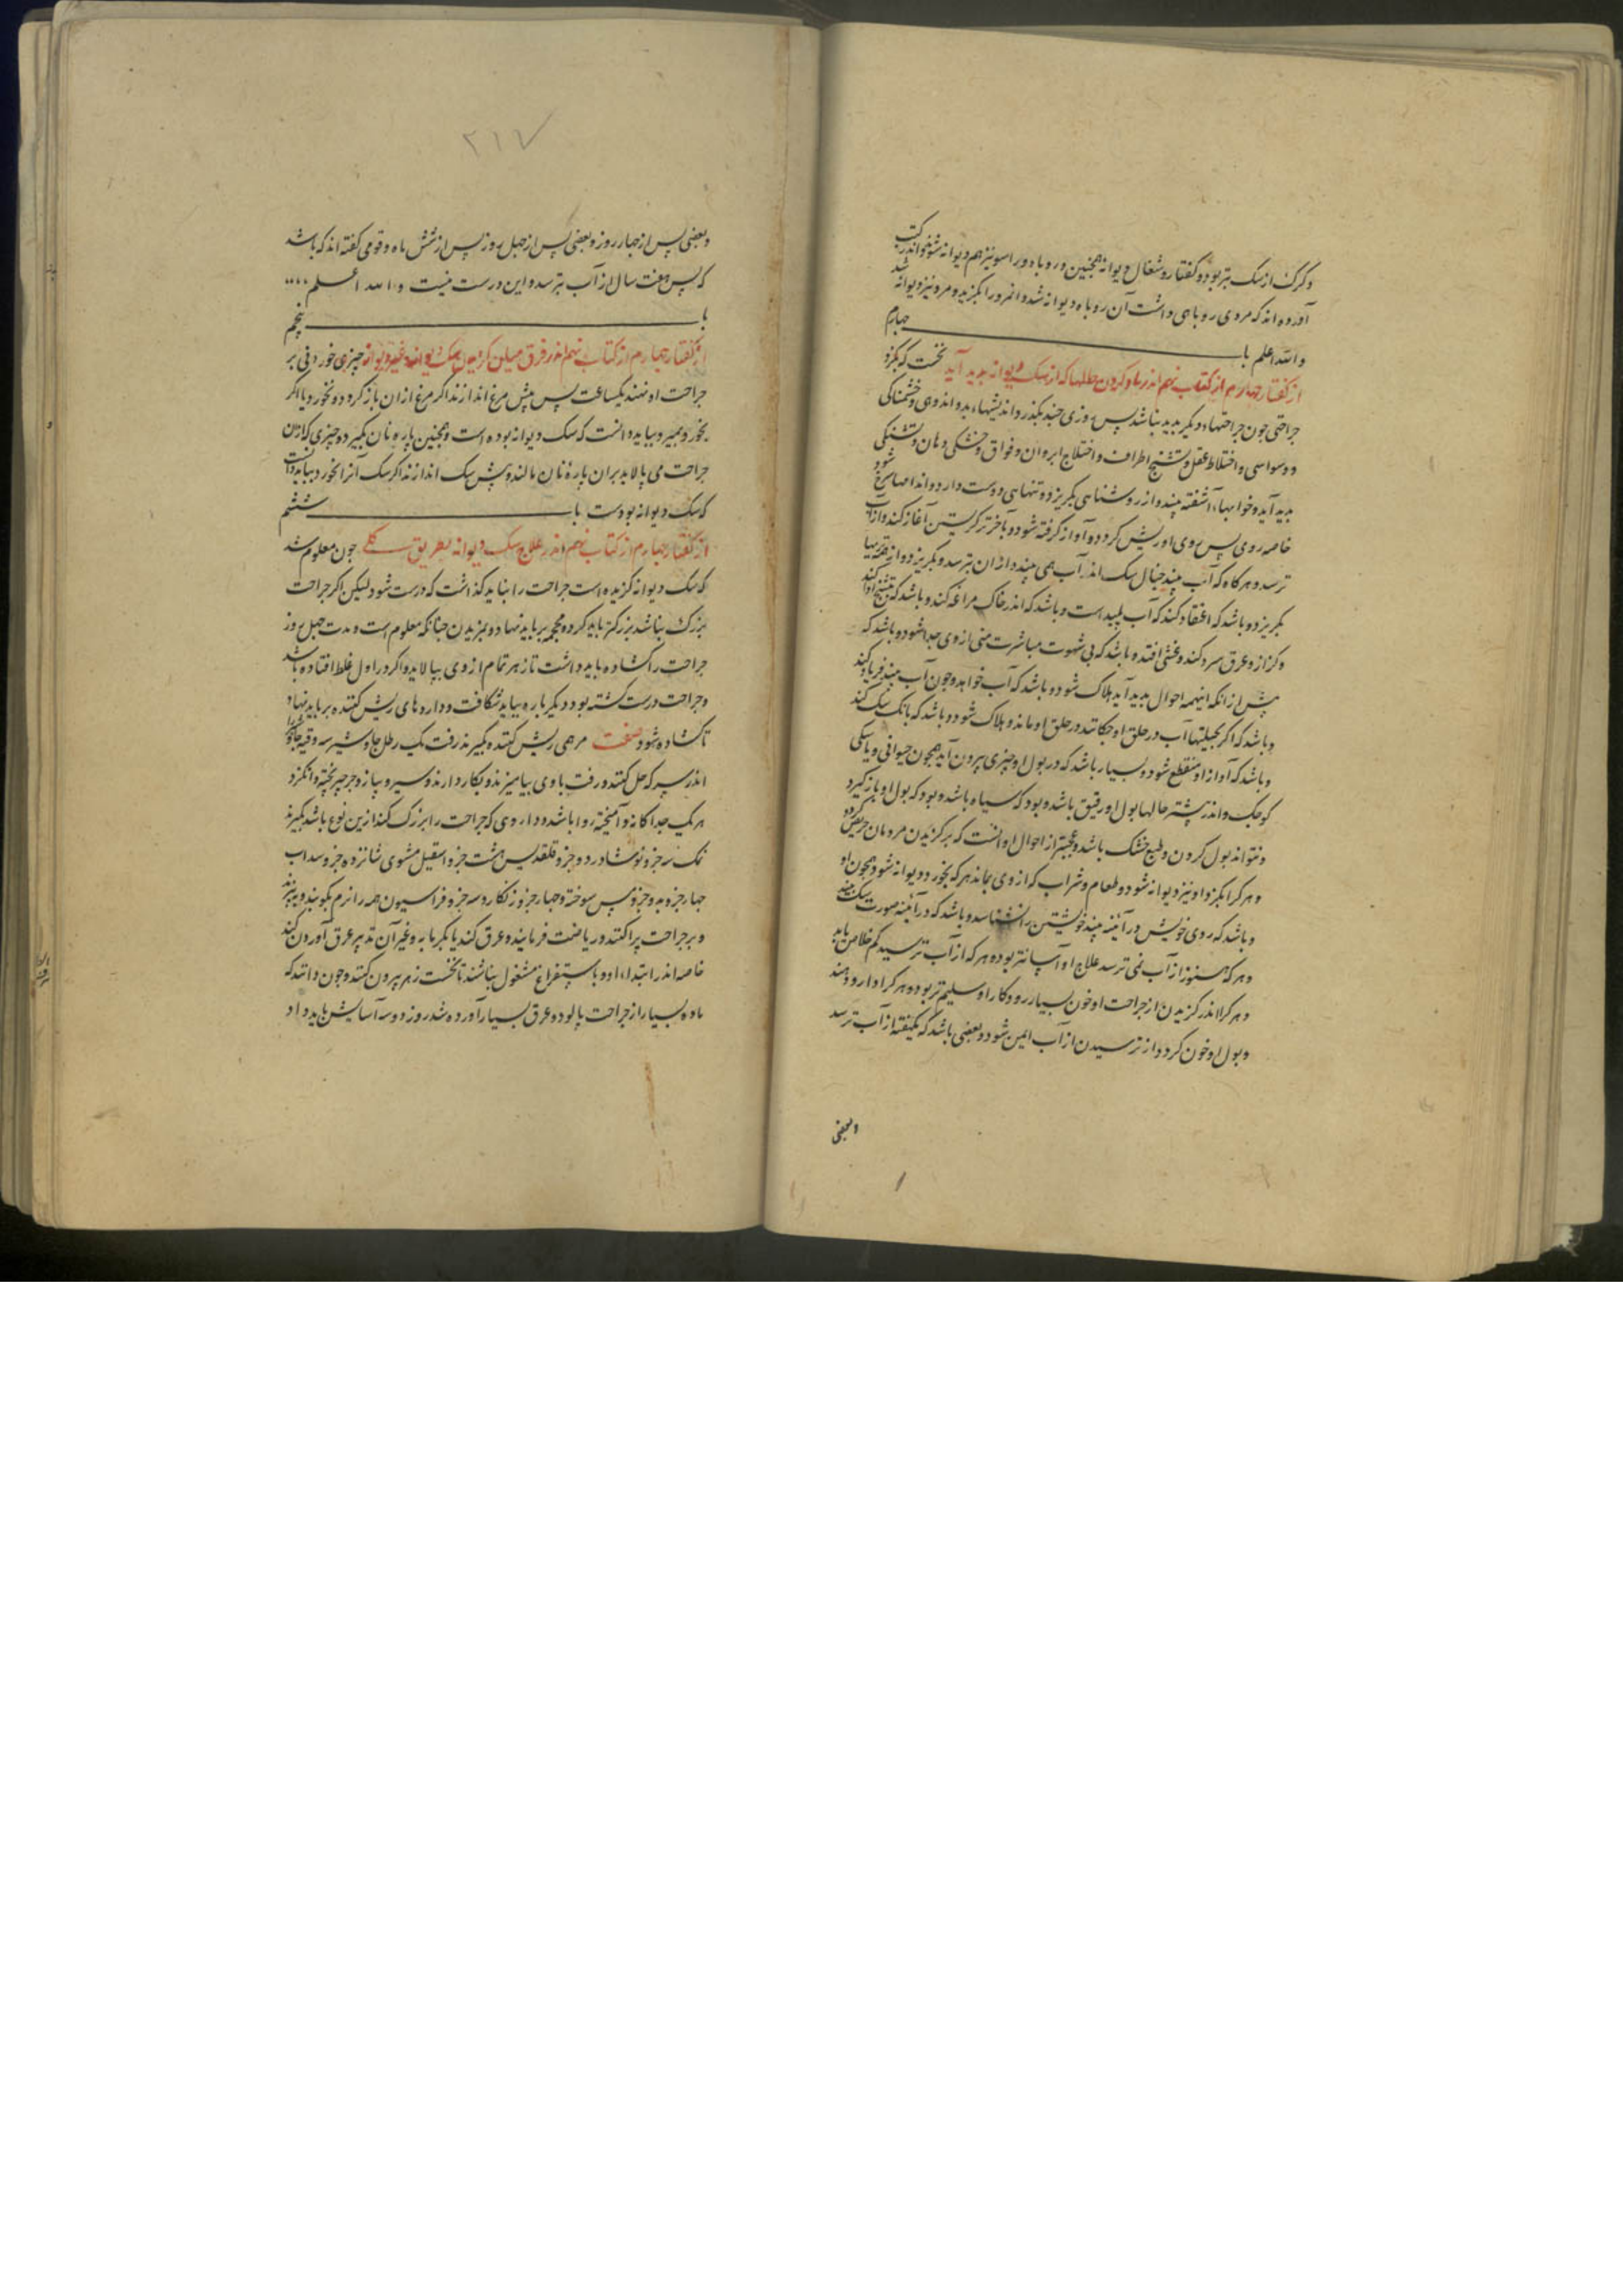 و گرگ از سگ بتر بود و کفتار و شغال دیوانه همچنین و روباه و راسو نیز هم دیوانه شود و اندر کتب
آورده اند که مردی روباهی داشت آن روباه دیوانه شد و آنمرد را بگزید و مرد نیز دیوانه شد
والله اعلم با چهارم
از گفتار چهارم از کتاب نهم اندر یاد کردن حالها که از سگ دیوانه پدید آید نخست که بگزد
جراحتی چون جراحتهاء دیگر پدید نباشد پس روزی چند بگذرد اندیشهاء بد و اندوهی و خشمناکی
و وسواسی و اختلاط عقل و تشنج اطراف و اختلاج ابروان و فواق و خشکی دهان و تشنگی
پدید آید و خوابهاء آشفته بیند و از روشنایی بگریزد و تنهایی دوست دارد و اندامها سرخ شود
خاصه روی پس روی او ریش گردد و آواز گرفته شود و بآخرتر گریستن آغاز کند و از آب
ترسد و هرگاه که آب بیند خیال سگ اندر آب همی بیند و از ان بترسد و بگریزد و از همه تریها
بگریزد و باشد که اعتقاد کند که آب پلید است و باشد که اندر خاک مراغه کند و باشد که تشنج افتد
و کزاز و عرق سرد کند و غشی افتد و باشد که بی شهوت مباشرت منی از وی جدا شود و باشد که
پیش از انکه اینهمه احوال پدید آید هلاک شود و باشد که آب خواهد و چون آب بیند فریاد کند
و باشد که اگر بحیلتها آب در حلق او چکانند در حلق او ماند و هلاک شود و باشد که بانگ سگ کند
و باشد که آواز او منقطع شود و بسیار باشد که در بول او چیزی بیرون آید همچون حیوانی و یا سگی
کوچک و اندر بیشتر حالها بول او رقیق باشد و بود که سیاه باشد و بود که بول او باز گیرد
و نتواند بول کردن و طبع خشک باشد و عجبتر از احوال او آنست که بر گزیدن مردمان حریص گردد
و هر کرا بگزد او نیز دیوانه شود و طعام و شراب که از وی بماند هر که بخورد دیوانه شود و همچون او
و باشد که روی خویش در آئینه بیند خویشتن را نشناسد و باشد که در آئینه صورت سگ بیند
و هر که هنوز از آب نمی ترسد علاج او آسانتر بود و هر که از آب ترسید کم خلاص یابد
و هر کرا اندر گزیدن از جراحت او خون بسیار رود کار او سلیم تر بود و هر کرا دارو دهند
و بول او خون گردد از ترسیدن از آب ایمن شود و بعضی باشد که بیکهفته از آب ترسد
وبعضی
۲۱۷
و بعضی پس از چهار روز و بعضی پس از چهل روز پس از شش ماه و قومی گفته اند که باشد
که پس هفت سال از آب بترسد و این درست نیست والله اعلم
با پنجم
از گفتار چهارم از کتاب نهم اندر فرق میان گزیدن سگ دیوانه و غیر دیوانه چیزی خوردنی بر
جراحت او نهند یکساعت پس پیش مرغ اندازند اگر مرغ از ان باز گردد و نخورد یا اگر
بخورد و بمیرد بباید دانست که سگ دیوانه بوده است و همچنین پاره نان بگیرد و چیزی که از ان
جراحت می پالاید بران پارهٔ نان مالند و پیش سگ اندازند اگر سگ آنرا نخورد بباید دانست
که سگ دیوانه بودست با ششم
از گفتار چهارم از کتاب نهم اندر علاج سگ دیوانه بطریق کلی چون معلوم شد
که سگ دیوانه گزیده است جراحت را نباید گذاشت که درست شود لیکن اگر جراحت
بزرگ نباشد بزرگتر باید کرد و محجمه بر باید نهاد و بمزیدن چنانکه معلوم است و مدت چهل روز
جراحت را گشاده باید داشت تا زهر تمام از وی بپالاید و اگر در اول غلط افتاده باشد
و جراحت درست گشته بود دیگر باره بباید شکافت و داروهای ریش کننده بر باید نهاد
تا گشاده شود صفت مرهمی ریش کننده بگیرند زفت یک رطل جاوشیر سه وقیه جاوشیر را
اندر سرکه حل کنند و زفت با وی بیامیزند و بکار دارند و سیر و پیاز و جرجیر پخته و انگزد
هر یک جداگانه و آمیخته روا باشد و داروی که جراحت را بزرگ کند ازین نوع باشد بگیرند
نمک سه جزو نوشادر دو جزو قلقدیس هشت جزو اسقیل مشوی شانزده جزو سداب
چهار جزو بد و جزو پس سوخته و چهار جزو زنگار و سه جزو فراسیون همه را نرم بکوبند و ببیزند
و بر جراحت پراکنند و ریاضت فرمایند و عرق کند یا بگرمابه و غیر آن تدبیر عرق آوردن کنند
خاصه اندر ابتداء او و باستفراغ مشغول نباشند تا نخست زهر بیرون کنند و چون دانند که
ماده بسیار از جراحت پالود و عرق بسیار آورده شد روز دو سه آسایش باید داد